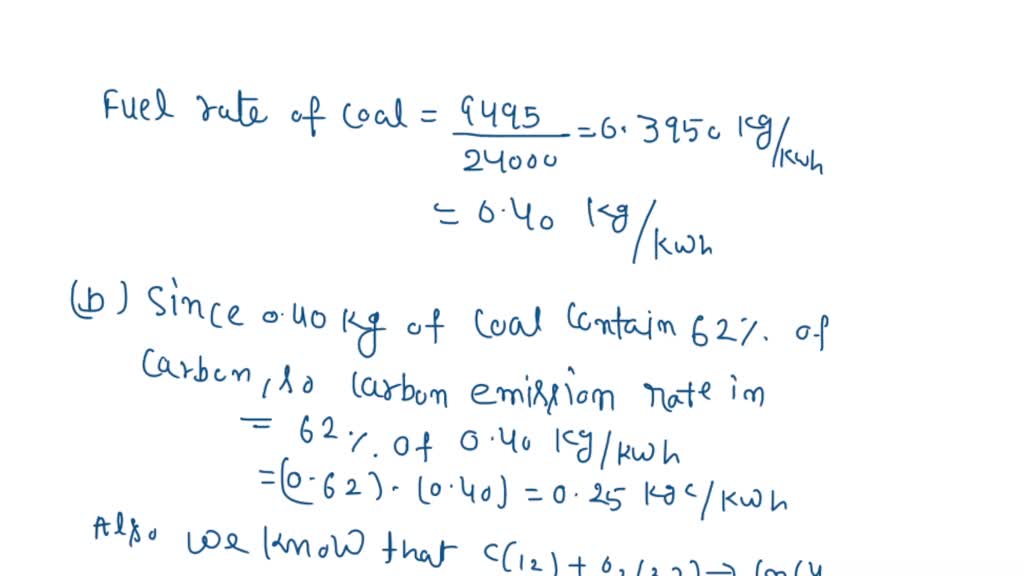 Fuel rate of coal = 9495/24000 = 0.3950 kg/kwh
= 0.40 kg/kwh
(b) Since 0.40 kg of coal contain 62% of
carbon, so carbon emission rate in
= 62% of 0.40 kg/kwh
= (0.62) · (0.40) = 0.25 kgc/kwh
Also we know that C(12) + O2(32) →